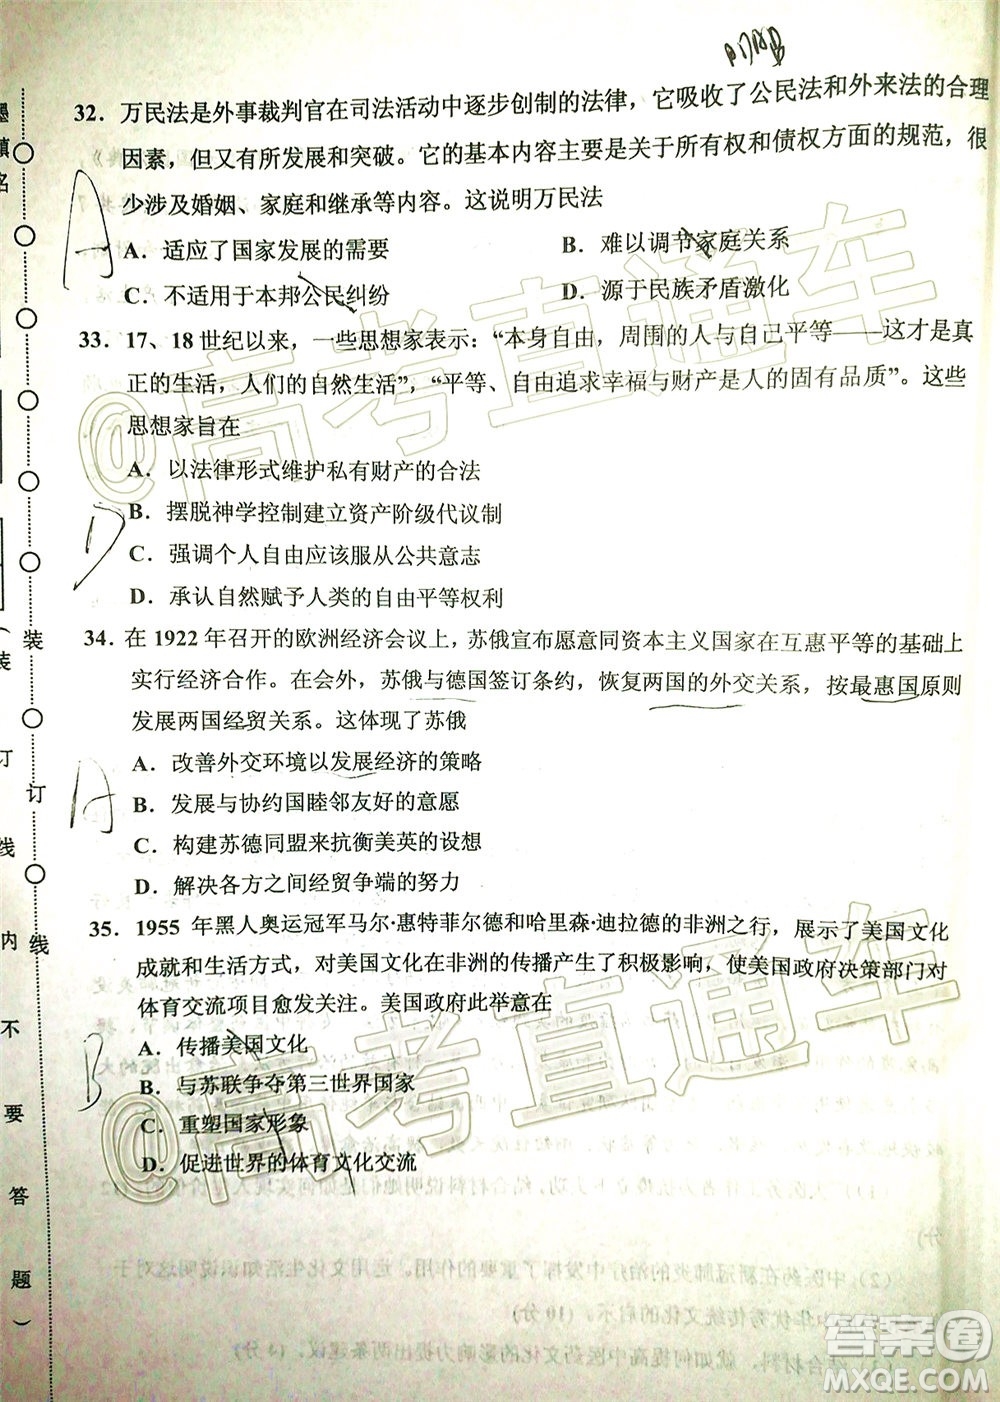 32．万民法是外事裁判官在司法活动中逐步创制的法律，它吸收了公民法和外来法的合理
因素，但又有所发展和突破。它的基本内容主要是关于所有权和债权方面的规范，很
少涉及婚姻、家庭和继承等内容。这说明万民法
A．适应了国家发展的需要
B．难以调节家庭关系
C．不适用于本邦公民纠纷
D．源于民族矛盾激化
A
33．17、18世纪以来，一些思想家表示：“本身自由，周围的人与自己平等——这才是真
正的生活，人们的自然生活”，“平等、自由追求幸福与财产是人的固有品质”。这些
思想家旨在
A．以法律形式维护私有财产的合法
B．摆脱神学控制建立资产阶级代议制
C．强调个人自由应该服从公共意志
D．承认自然赋予人类的自由平等权利
D
34．在1922年召开的欧洲经济会议上，苏俄宣布愿意同资本主义国家在互惠平等的基础上
实行经济合作。在会外，苏俄与德国签订条约，恢复两国的外交关系，按最惠国原则
发展两国经贸关系。这体现了苏俄
A．改善外交环境以发展经济的策略
B．发展与协约国睦邻友好的意愿
C．构建苏德同盟来抗衡美英的设想
D．解决各方之间经贸争端的努力
A
35．1955年黑人奥运冠军马尔·惠特菲尔德和哈里森·迪拉德的非洲之行，展示了美国文化
成就和生活方式，对美国文化在非洲的传播产生了积极影响，使美国政府决策部门对
体育交流项目愈发关注。美国政府此举意在
A．传播美国文化
B．与苏联争夺第三世界国家
C．重塑国家形象
D．促进世界的体育文化交流
B
装
订
线
装
订
线
内
不
要
答
题
@高考直通车
@高考直通车
答案卷
MXQE.COM